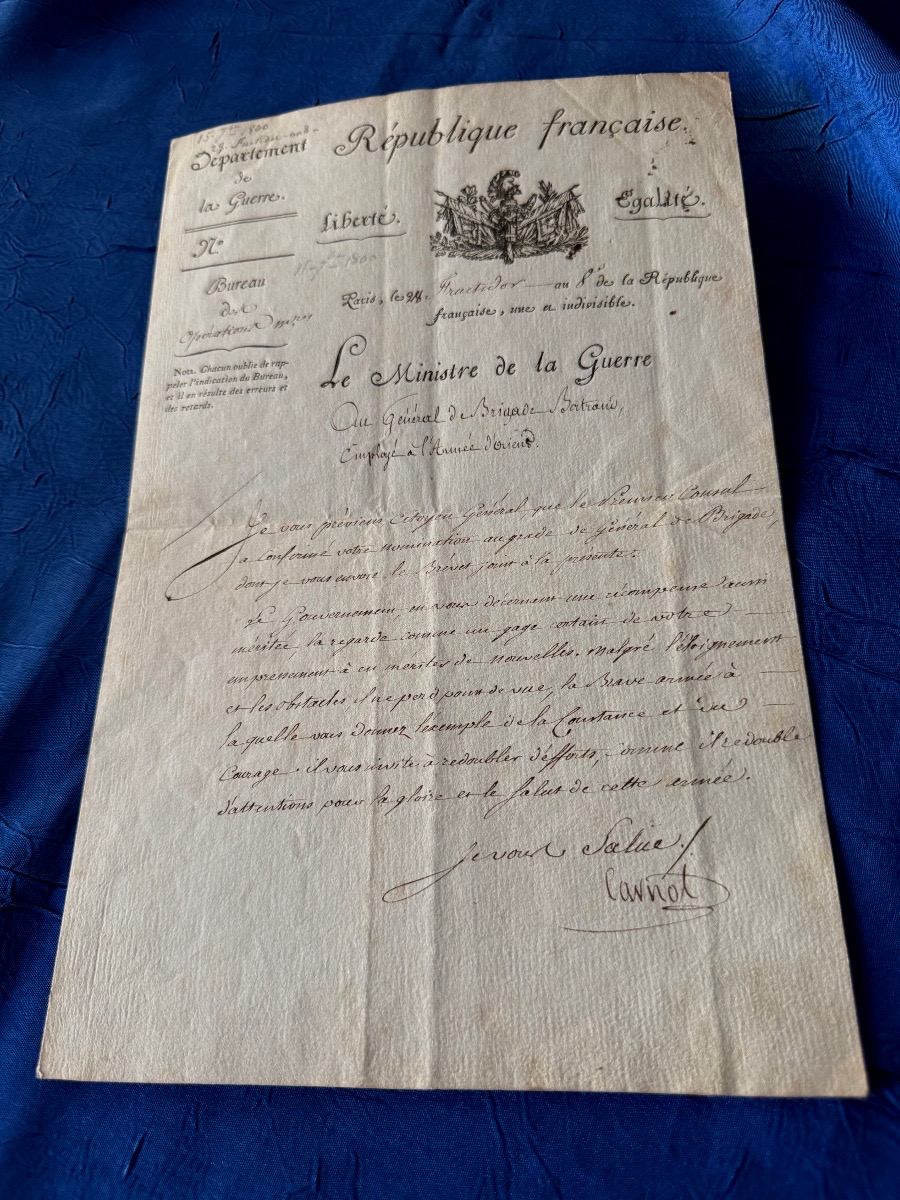 15 7bre 1800
28 fructidor an 8
Département
de
la Guerre.
N.°
Bureau
des
Opérations mres
Nota. Chacun oublie de rap-
peler l'indication du Bureau,
et il en résulte des erreurs et
des retards.
République française.
Liberté.
Egalité.
15 7bre 1800
Paris, le 28. Fructidor au 8.e de la République
française, une et indivisible.
Le Ministre de la Guerre
Au Général de Brigade Bertrand,
Employé à l'Armée d'orient.
Je vous préviens, Citoyen Général, que le Premier Consul
a confirmé votre nomination au grade de Général de Brigade,
dont je vous envoie le Brévet joint à la présente.
Le Gouvernement, en vous décernant une récompense aussi
méritée, la regarde comme un gage certain de votre
empressement à en mériter de nouvelles. malgré l'éloignement
et les obstacles il ne perd point de vue, la Brave armée à
laquelle vous donnez l'exemple de la Constance et du
Courage. il vous invite à redoubler d'efforts, comme il redouble
d'attentions pour la gloire et le salut de cette armée.
Je vous Salue.
Carnot